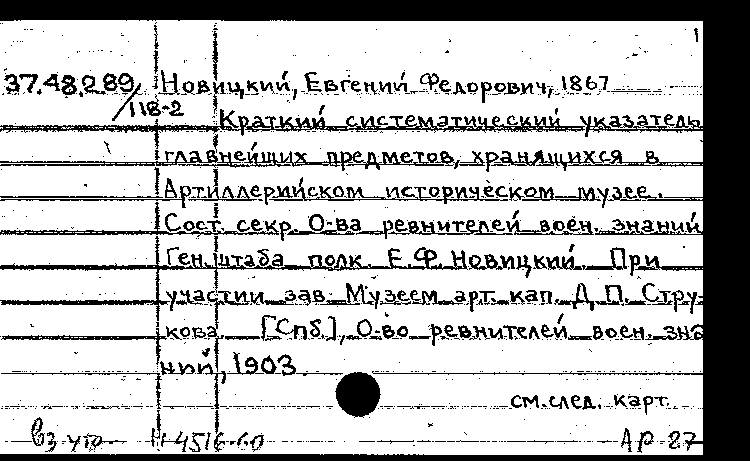 1
37.48.2.89/118-2 Новицкий, Евгений Федорович, 1867
Краткий систематический указатель
главнейших предметов, хранящихся в
Артиллерийском историческом музее.
Сост. секр. О-ва ревнителей воен. знаний
Ген. штаба полк. Е.Ф. Новицкий. При
участии зав. Музеем арт. кап. Д.П. Стру-
кова. [Спб], О-во ревнителей воен. зна
ний, 1903.
см. след. карт.
4516-60 АР-87